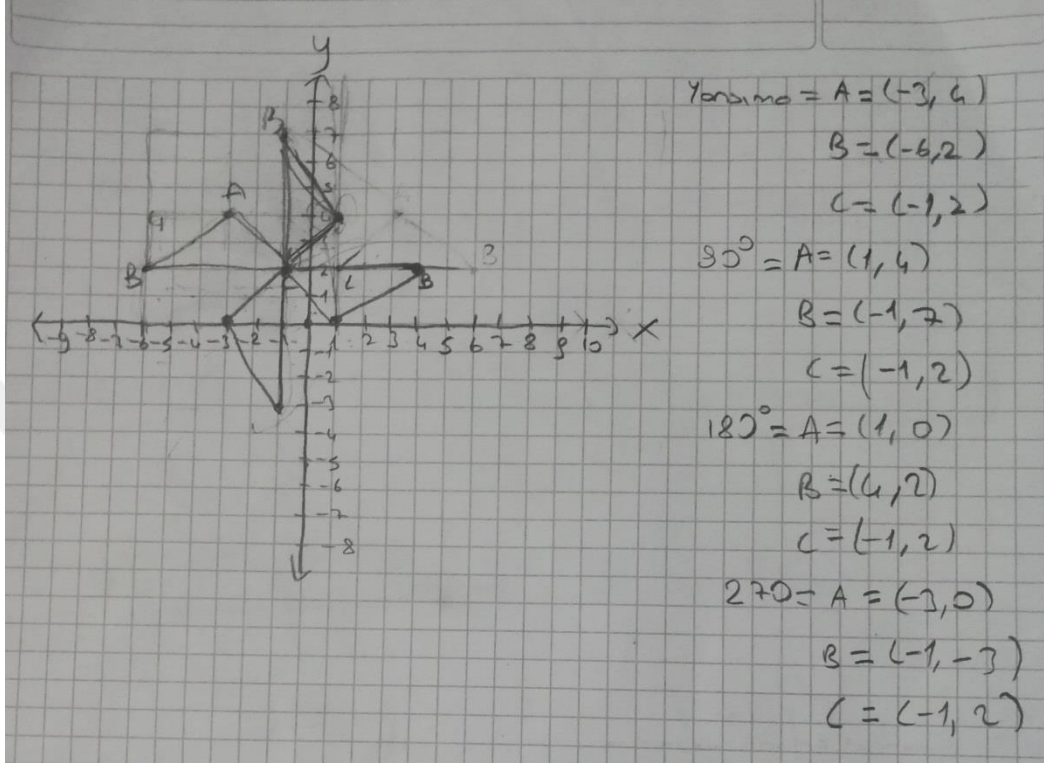 y
8
B
7
6
5
A
4
4
3
B
2
C
B
3
1
-9 -8 -7 -6 -5 -4 -3 -2 -1 1 2 3 4 5 6 7 8 9 10 x
-1
-2
-3
-4
-5
-6
-7
-8
Yansıma = A = (-3, 4)
B = (-6,2)
C = (-1,2)
90° = A = (1, 4)
B = (-1, 7)
C = (-1, 2)
180° = A = (1, 0)
B = (4, 2)
C = (-1, 2)
270 = A = (-3, 0)
B = (-1, -3)
C = (-1, 2)